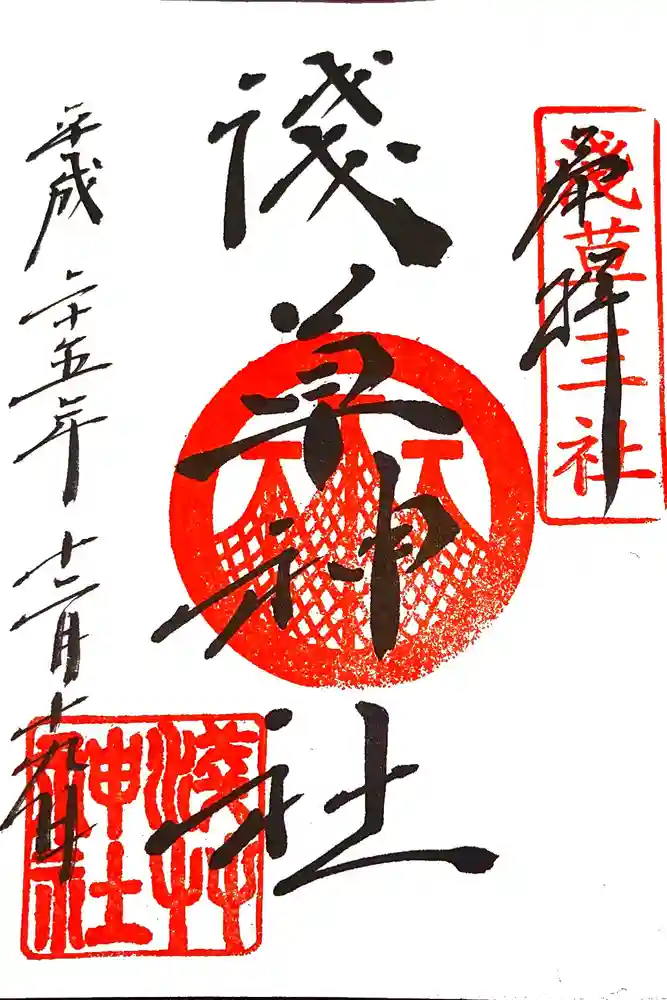 奉拝
淺草三社
淺草神社
淺草神社
平成二十五年十二月十九日